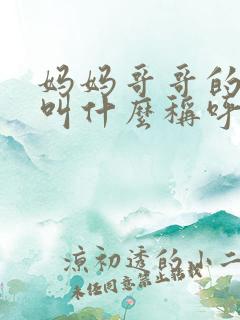 妈妈哥哥的
叫什麼稱呼
涼初透的小二
未经同意禁止转载